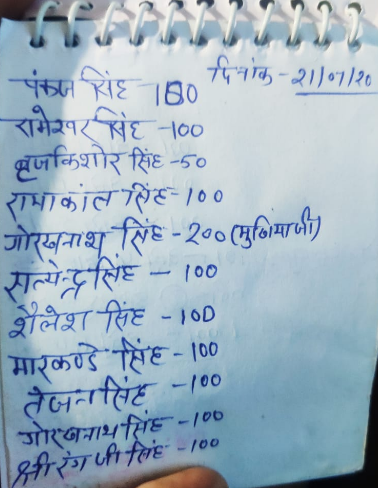 दिनांक - 21/07/20
पंकज सिंह - 150
रामेश्वर सिंह - 100
बृजकिशोर सिंह - 50
रामाकांत सिंह - 100
गोरखनाथ सिंह - 200 (मुखियाजी)
सत्येन्द्र सिंह - 100
शैलेश सिंह - 100
मारकण्डे सिंह - 100
तेजन सिंह - 100
गोरखनाथ सिंह - 100
श्री रंग जी सिंह - 100